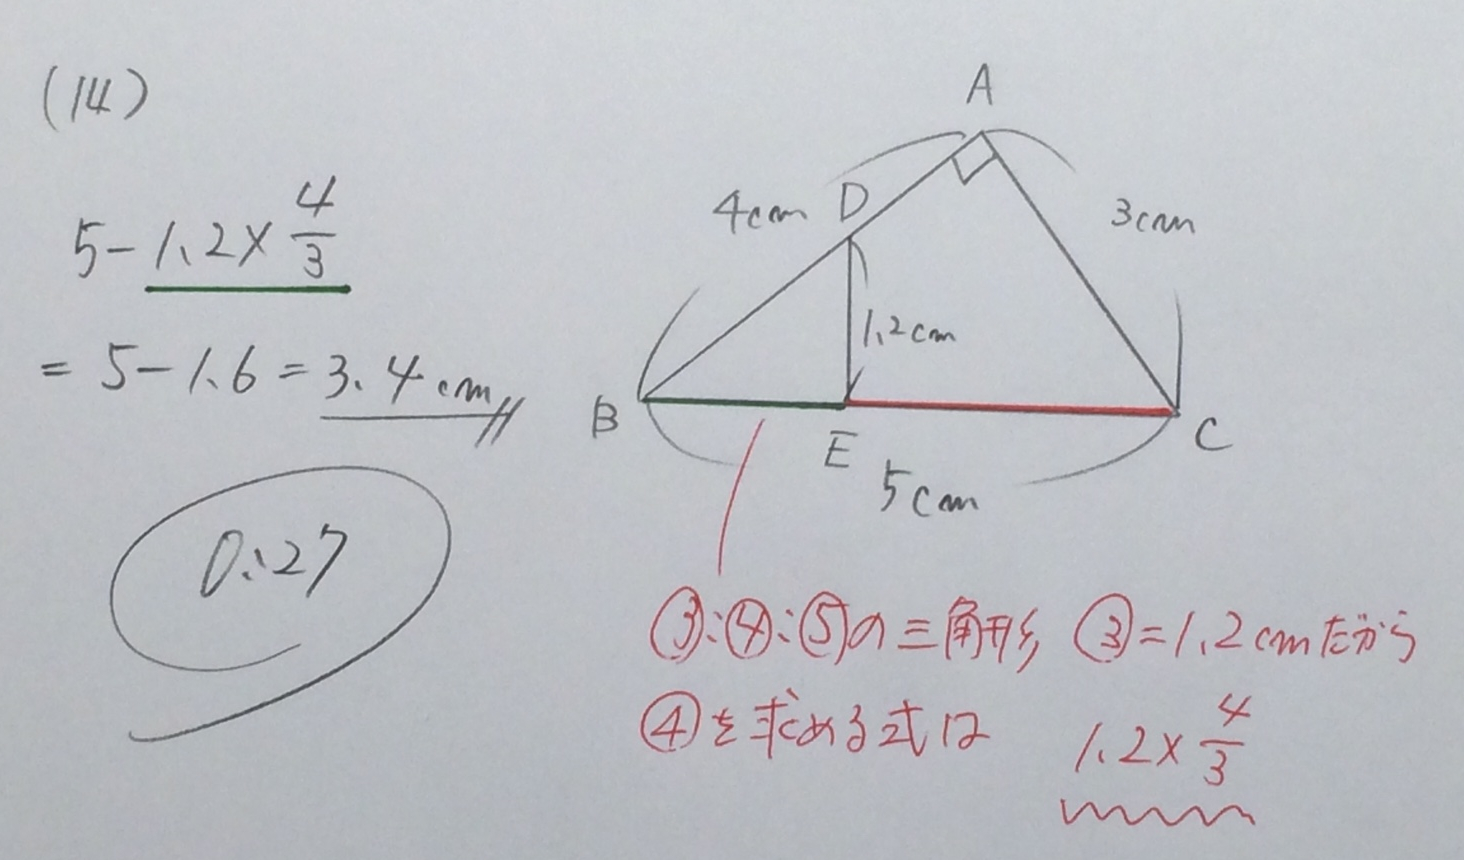 (14)
5-1.2×4/3
=5-1.6=3.4cm
0:27
A
4cm
D
3cm
1.2cm
B
E
C
5cm
③:④:⑤の三角形 ③=1.2cmだから
④を求める式は 1.2×4/3